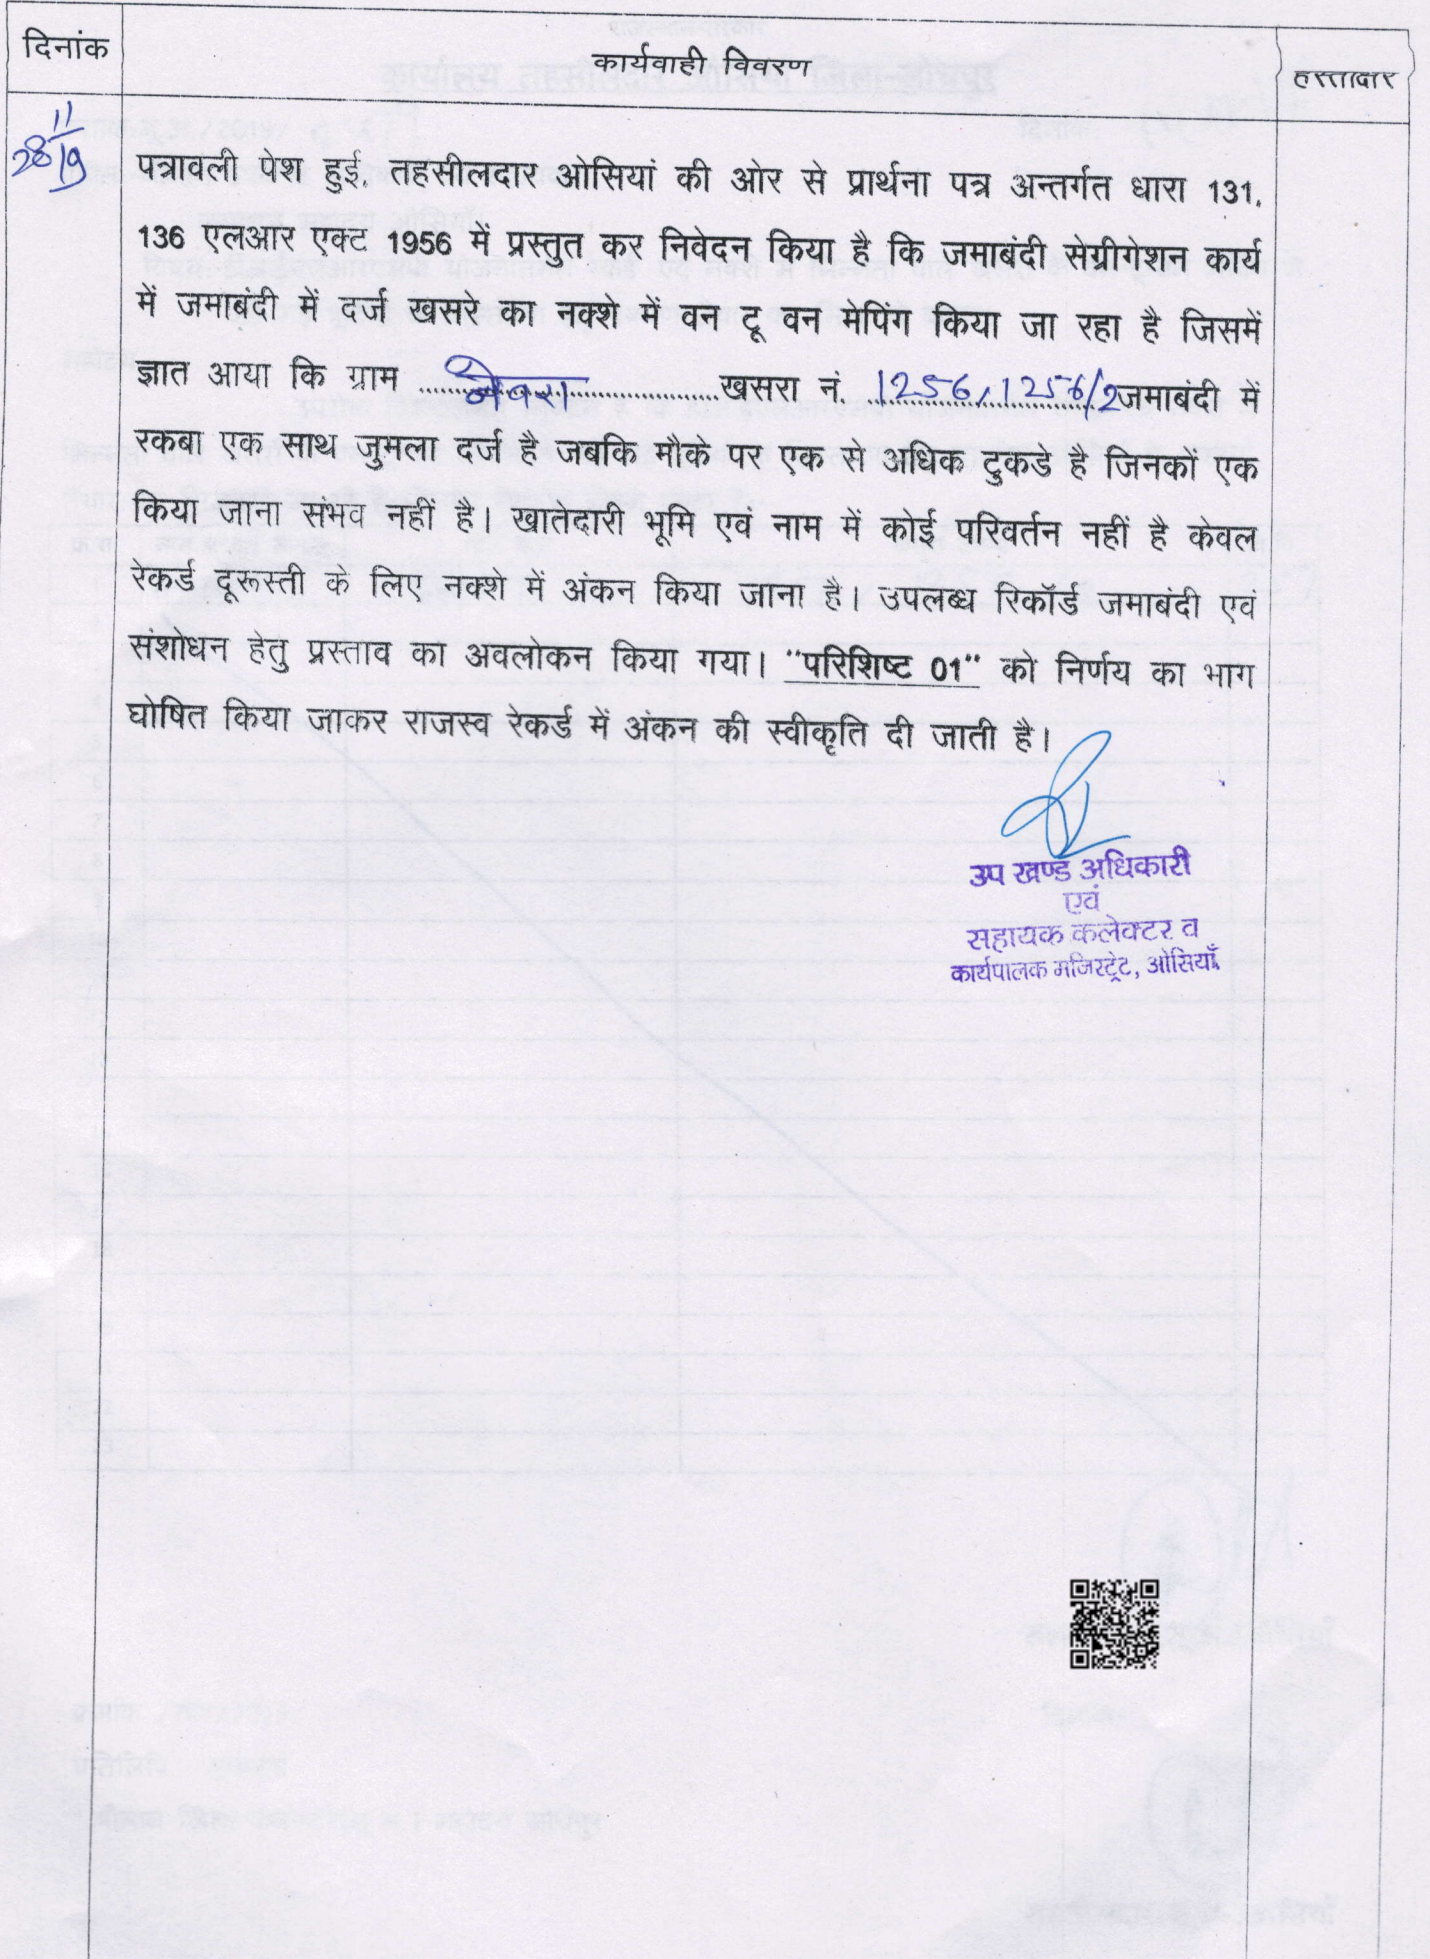 दिनांक
कार्यवाही विवरण
28/11/19
पत्रावली पेश हुई, तहसीलदार ओसियां की ओर से प्रार्थना पत्र अन्तर्गत धारा 131,
136 एलआर एक्ट 1956 में प्रस्तुत कर निवेदन किया है कि जमाबंदी सेग्रीगेशन कार्य
में जमाबंदी में दर्ज खसरे का नक्शे में वन टू वन मेपिंग किया जा रहा है जिसमें
ज्ञात आया कि ग्राम नेवरा खसरा नं. 1256, 1256/2 जमाबंदी में
रकबा एक साथ जुमला दर्ज है जबकि मौके पर एक से अधिक टुकडे है जिनकों एक
किया जाना संभव नहीं है। खातेदारी भूमि एवं नाम में कोई परिवर्तन नहीं है केवल
रेकर्ड दूरूस्ती के लिए नक्शे में अंकन किया जाना है। उपलब्ध रिकॉर्ड जमाबंदी एवं
संशोधन हेतु प्रस्ताव का अवलोकन किया गया। "परिशिष्ट 01" को निर्णय का भाग
घोषित किया जाकर राजस्व रेकर्ड में अंकन की स्वीकृति दी जाती है।
उप खण्ड अधिकारी
एवं
सहायक कलेक्टर व
कार्यपालक मजिस्ट्रेट, ओसियाँ